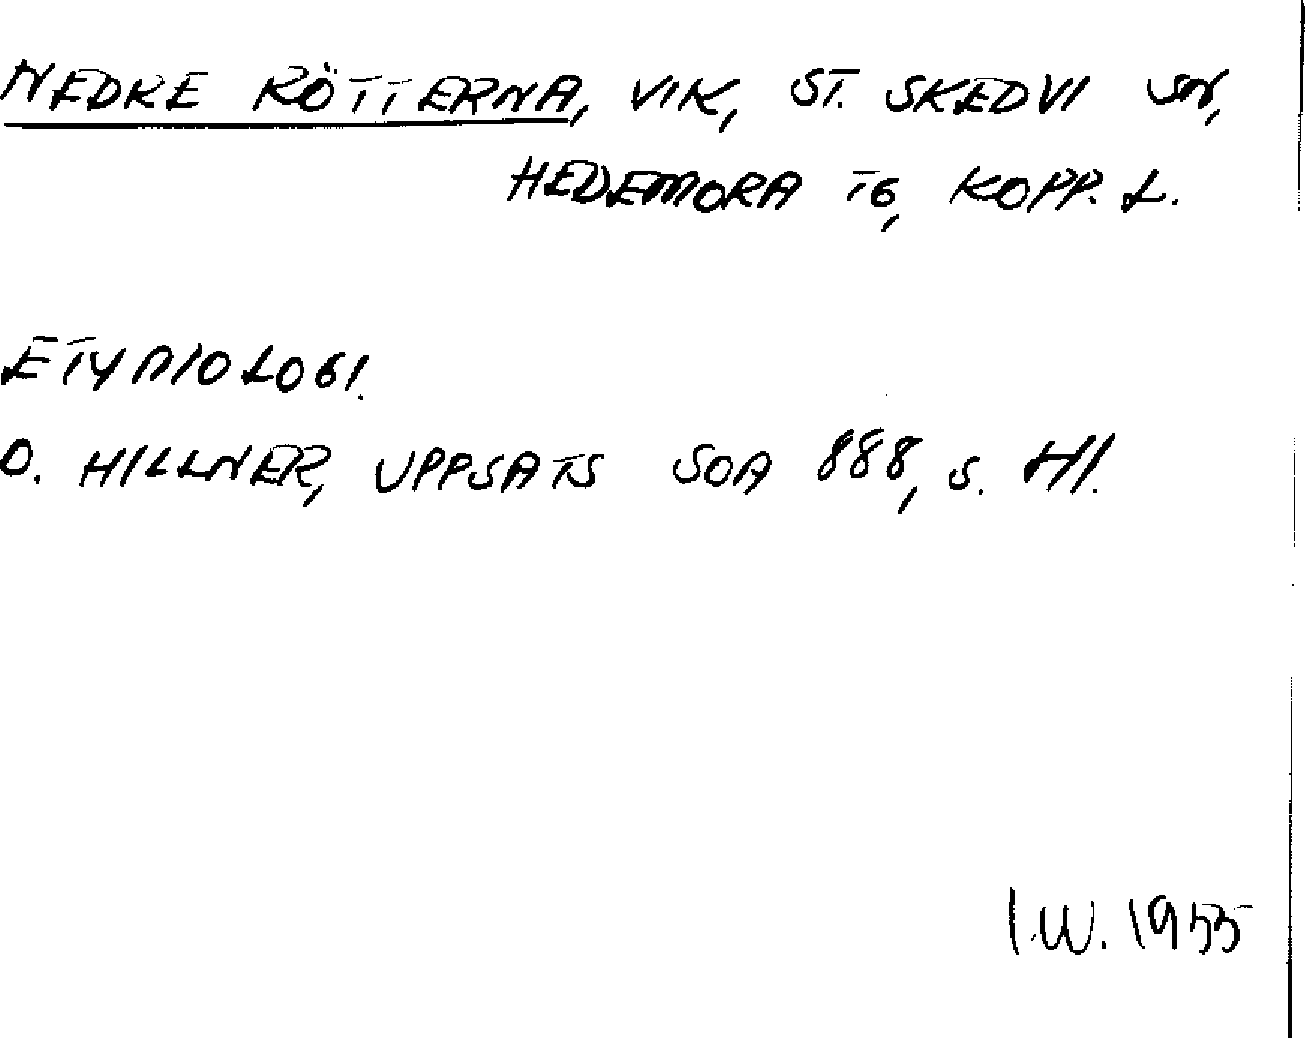 NEDRE RÖTTERNA, VIK, ST. SKEDVI SN,
HEDEMORA TG, KOPP. L.
ETYMOLOGI.
O. HILLNER, UPPSATS SOA 888, S.
I.W. 1955